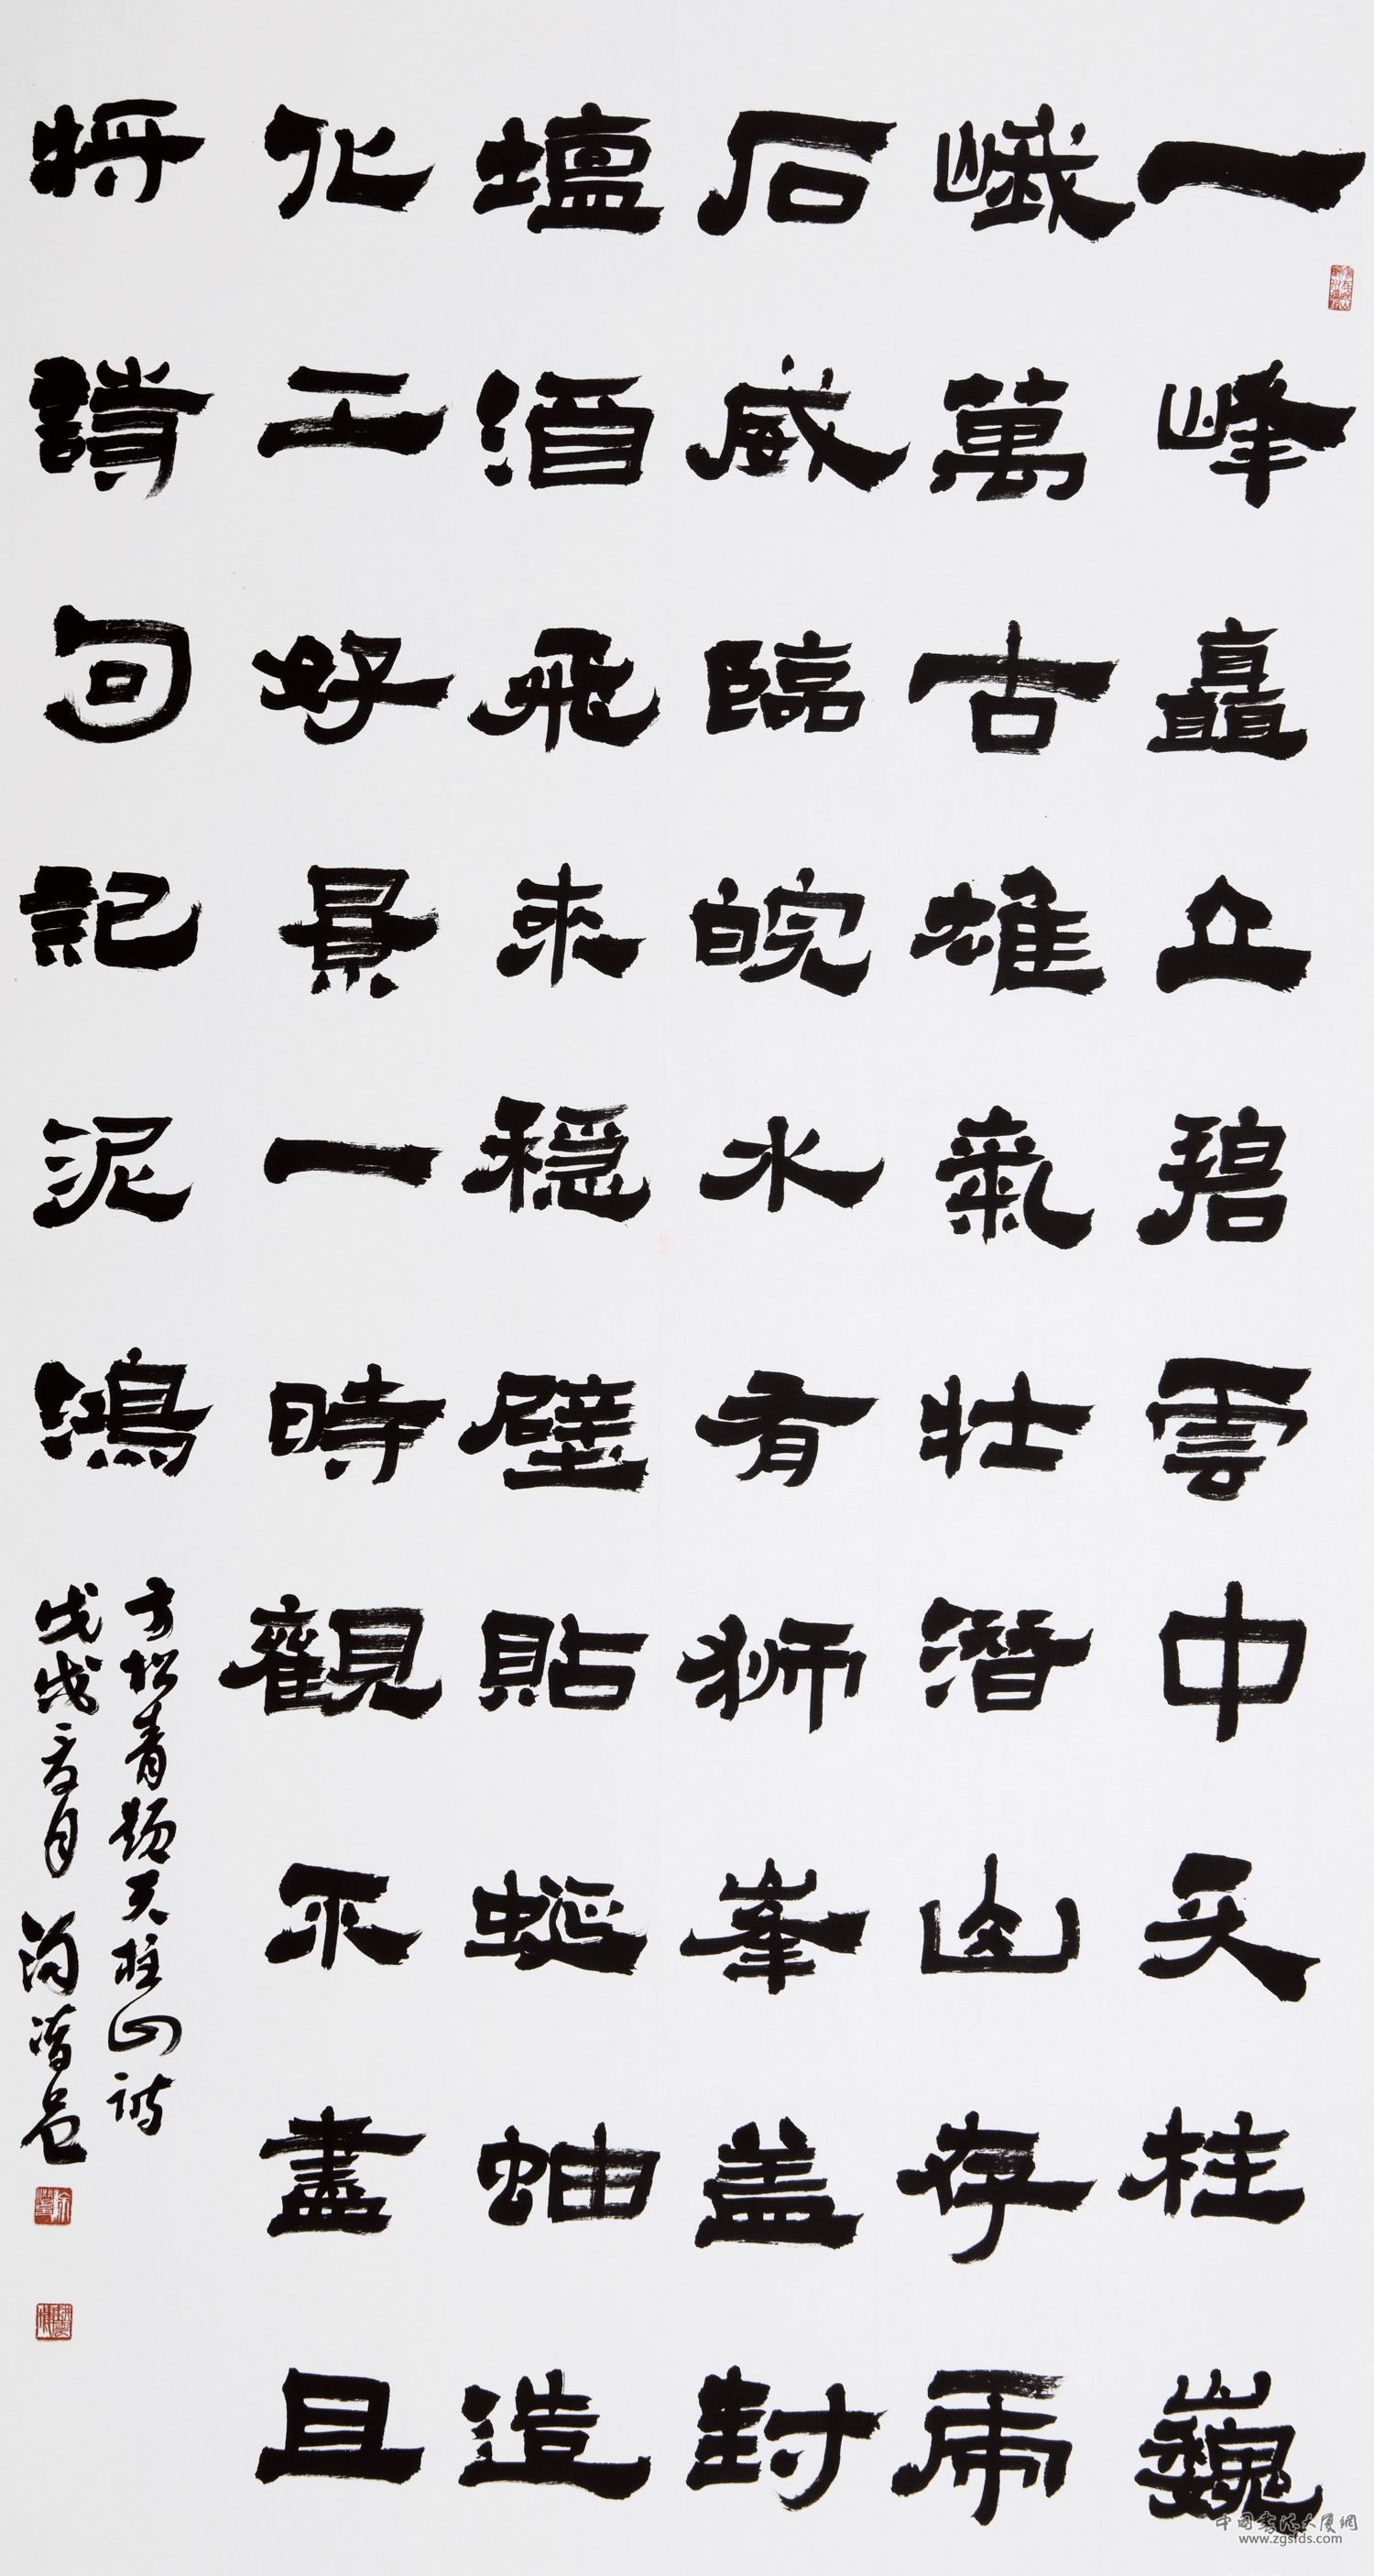 一峰矗立碧雲中天柱巍
峨萬古雄氣壯潛山存虎
石威臨皖水有狮峯盖封
壇酒飛來穩壁貼蜒蚰造
化工好景一時觀不盡且
将詩句記泥鴻
方松青題天柱山詩
戊戌夏月
中国书法大厦網
www.zgsfds.com